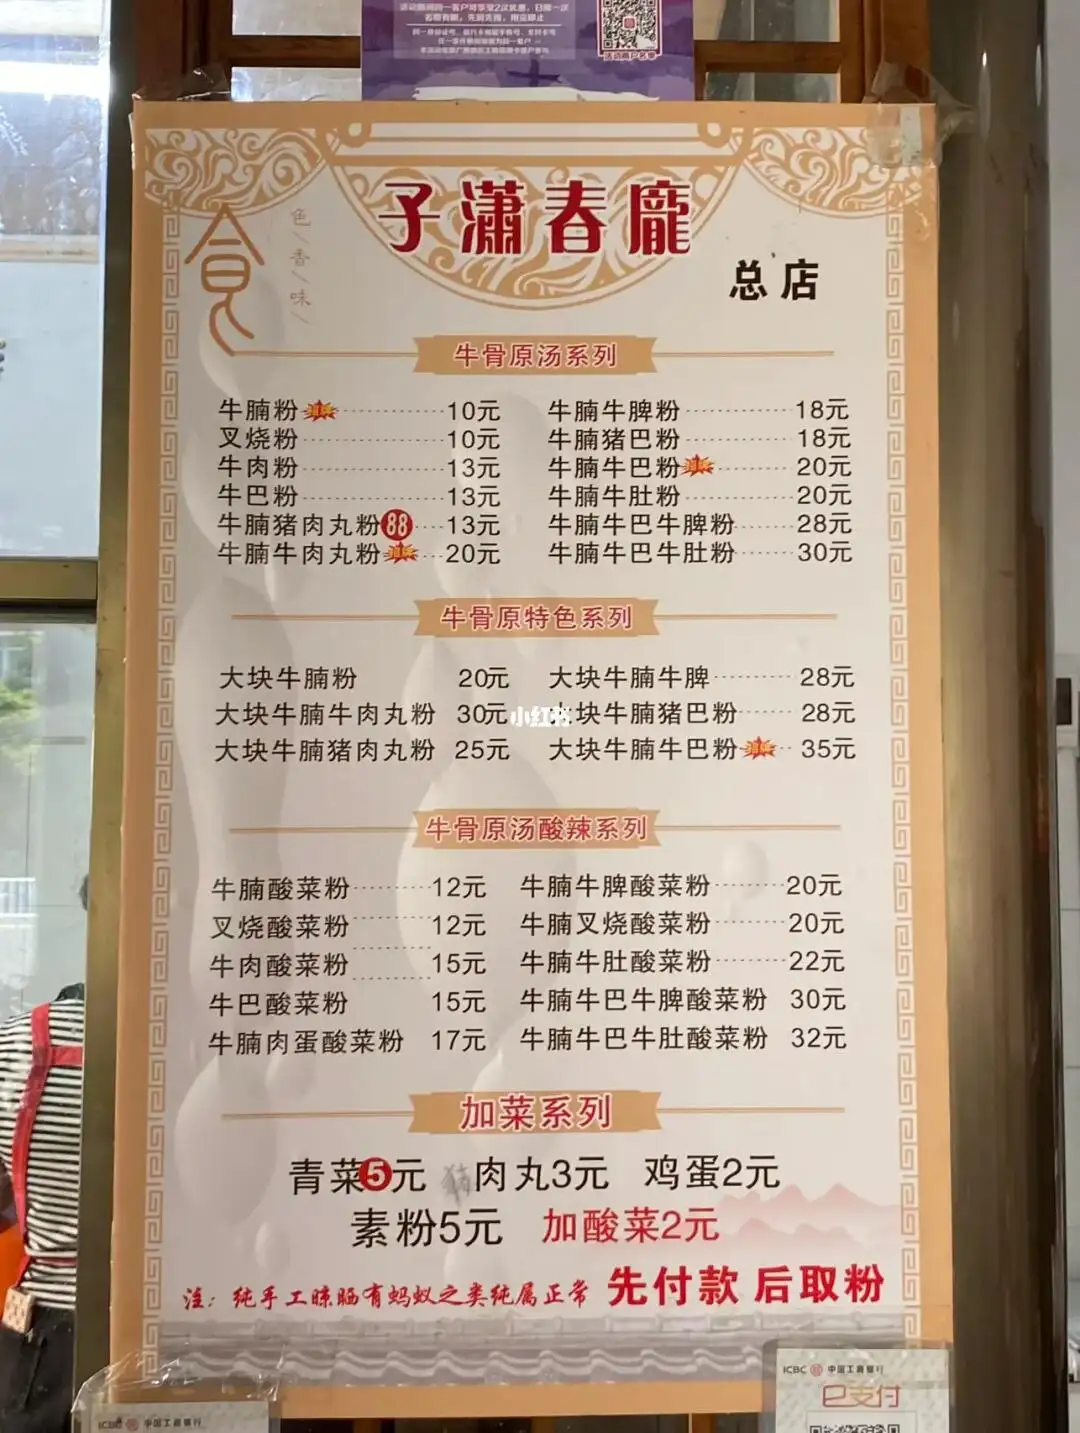 色
香
味
子潇春庞
总店
牛骨原汤系列
牛腩粉 10元
叉烧粉 10元
牛肉粉 13元
牛巴粉 13元
牛腩猪肉丸粉 88 13元
牛腩牛肉丸粉 20元
牛腩牛脾粉 18元
牛腩猪巴粉 18元
牛腩牛巴粉 20元
牛腩牛肚粉 20元
牛腩牛巴牛脾粉 28元
牛腩牛巴牛肚粉 30元
牛骨原特色系列
大块牛腩粉 20元
大块牛腩牛肉丸粉 30元
大块牛腩猪肉丸粉 25元
大块牛腩牛脾 28元
块牛腩猪巴粉 28元
大块牛腩牛巴粉 35元
小红书
牛骨原汤酸辣系列
牛腩酸菜粉 12元
叉烧酸菜粉 12元
牛肉酸菜粉 15元
牛巴酸菜粉 15元
牛腩肉蛋酸菜粉 17元
牛腩牛脾酸菜粉 20元
牛腩叉烧酸菜粉 20元
牛腩牛肚酸菜粉 22元
牛腩牛巴牛脾酸菜粉 30元
牛腩牛巴牛肚酸菜粉 32元
加菜系列
青菜5元 猪肉丸3元 鸡蛋2元
素粉5元 加酸菜2元
注：纯手工晾晒有蚂蚁之类纯属正常 先付款 后取粉
ICBC 中国工商银行
ICBC 中国工商银行
e支付